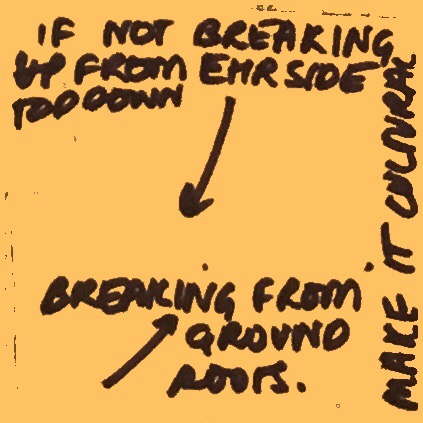 IF NOT BREAKING
UP FROM EHR SIDE
TOD DOWN
BREAKING FROM
GROUND
ROOTS.
MAKE IT CULTURAL